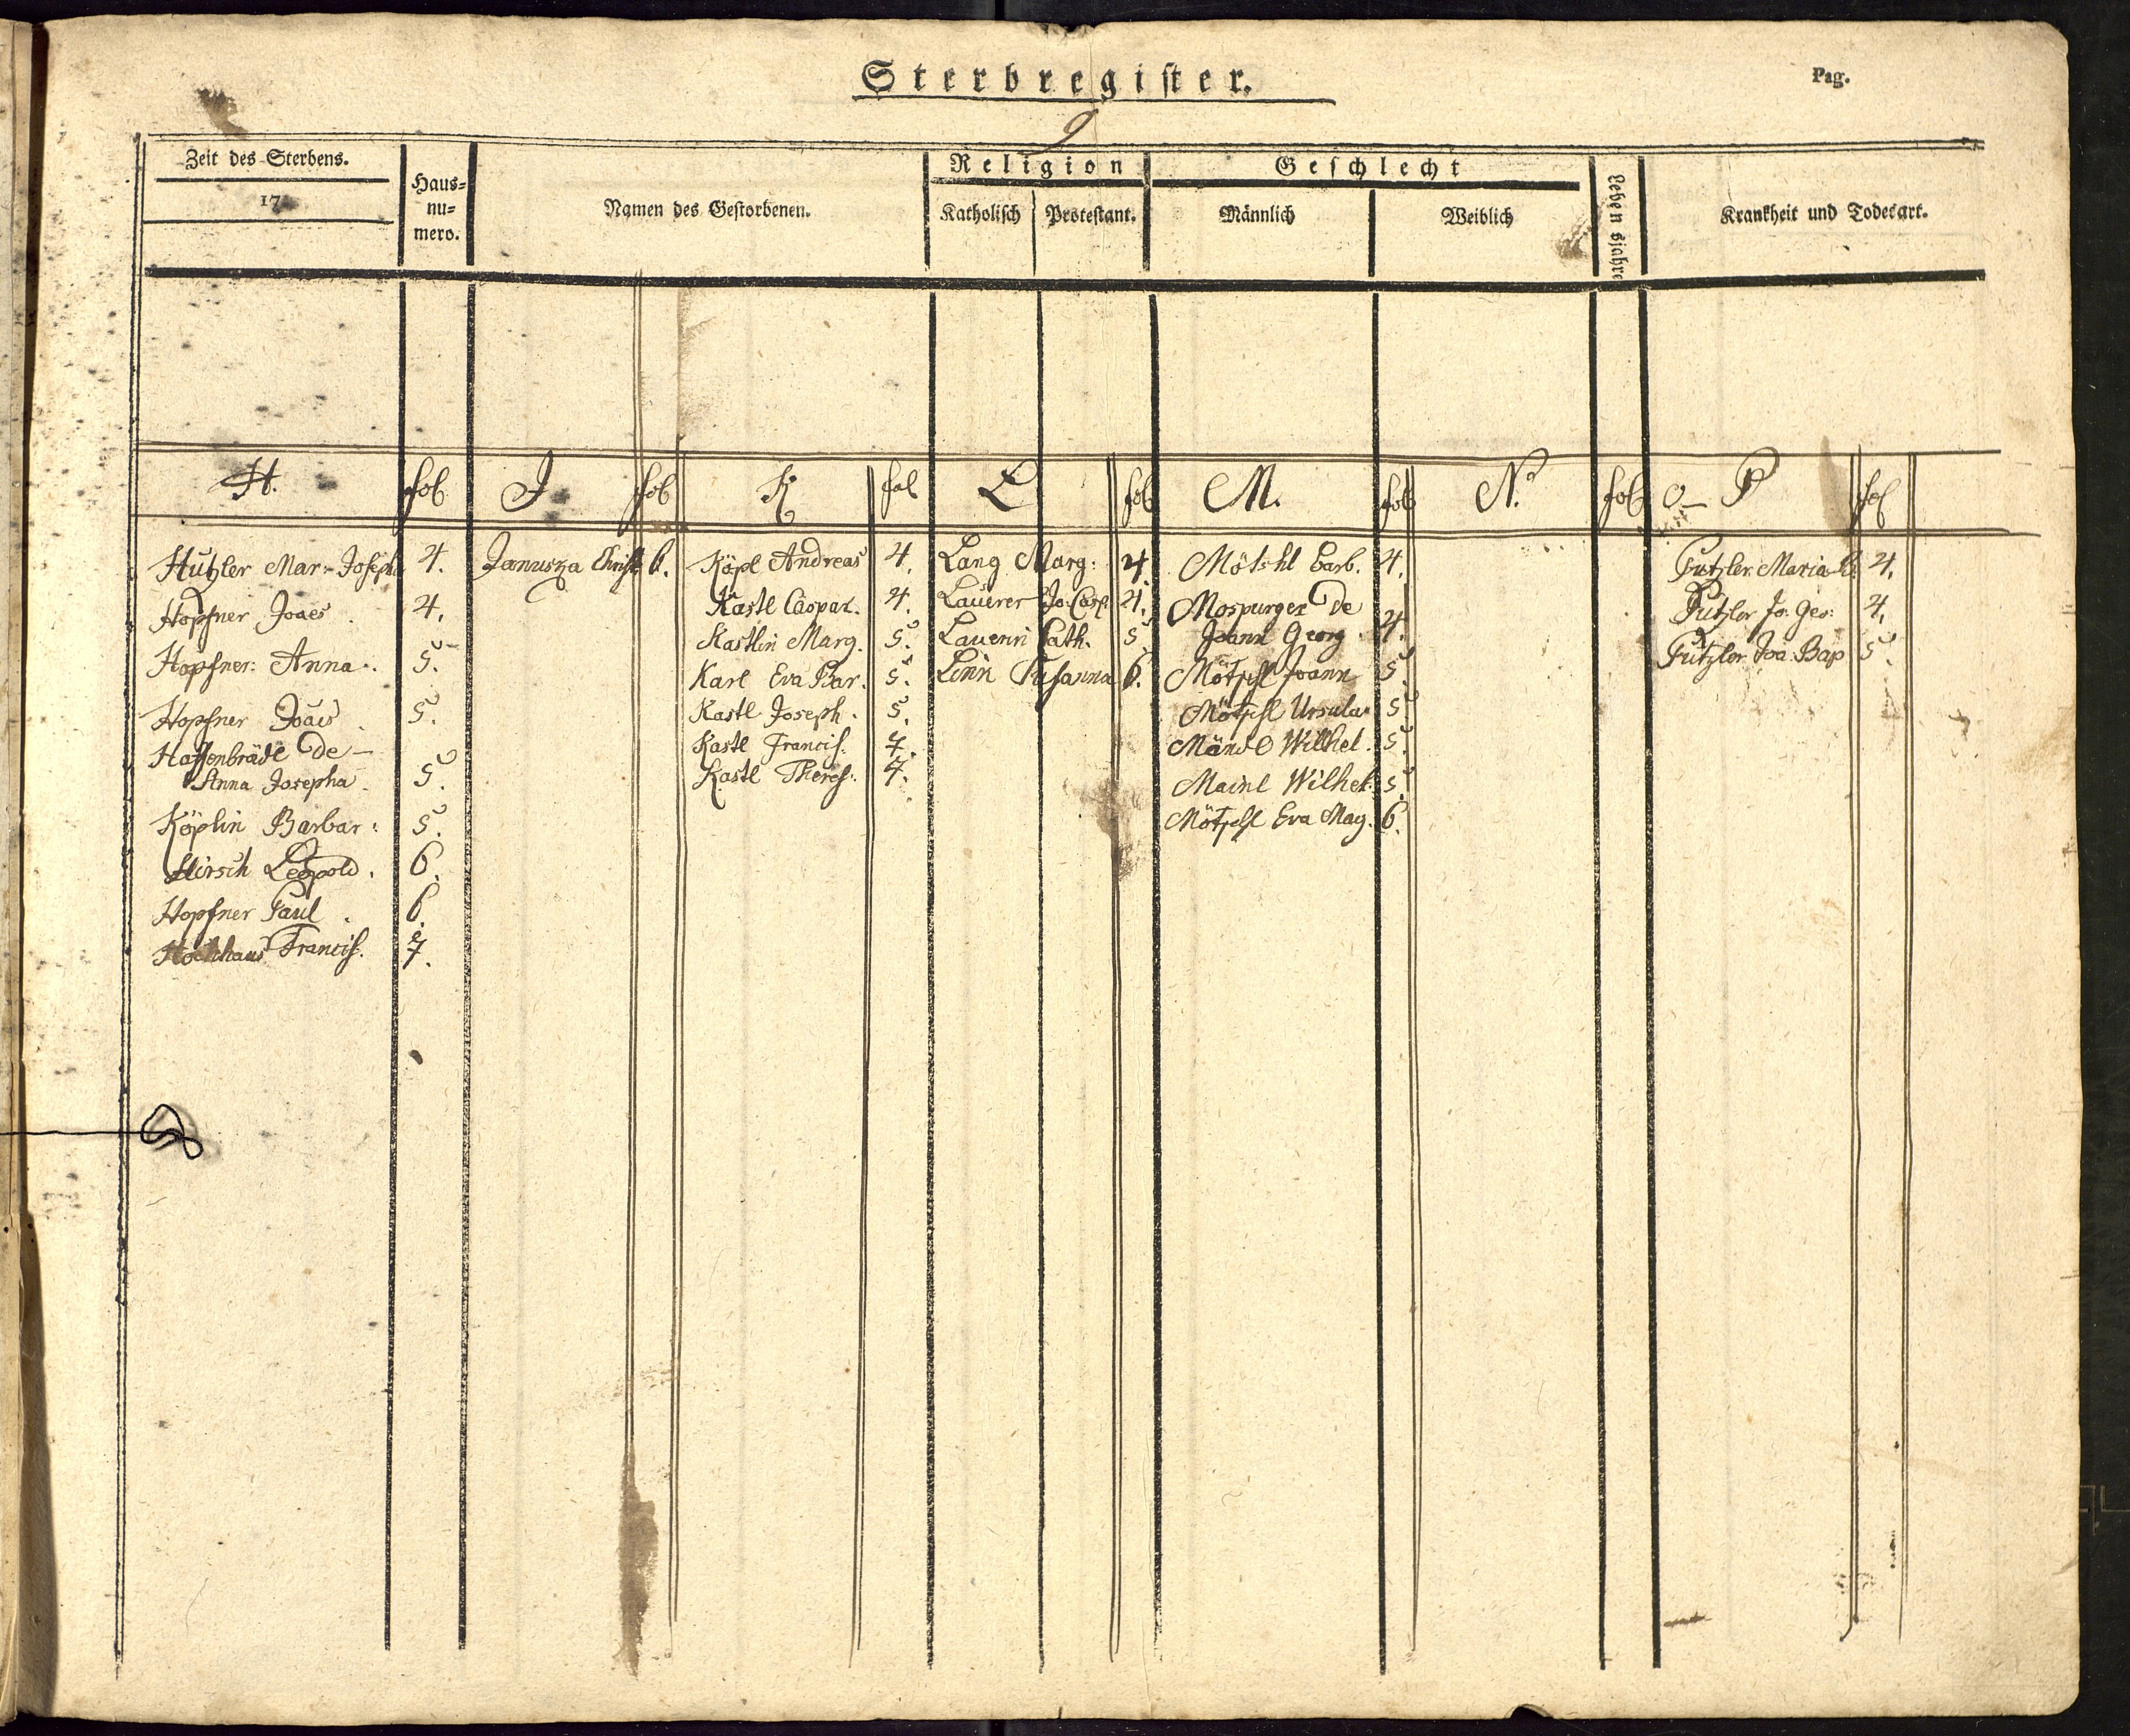 Sterbregister.
Pag.
9
Zeit des Sterbens.
17
Haus-
nu-
mero.
Namen des Gestorbenen.
Religion
Katholisch
Protestant.
Geschlecht
Männlich
Weiblich
Lebensjahre
Krankheit und Todesart.
H. fol J fol K fol L fol M. fol N. fol O P fol
Hutzler Mar: Josepha 4.
Hopfner Joaes 4.
Hopfner: Anna. 5.
Hopfner Joaes 5.
Hafenbrädl De
Anna Josepha. 5.
Köplin Barbar: 5.
Hirsch Leopold. 6.
Hopfner Paul 6.
Hochhaus Francis. 7.
Janusza Christ 6.
Köpl Andreas 4.
Kastl Caspar. 4.
Kastlin Marg. 5.
Karl Eva Bar. 5.
Kastl Joseph. 5.
Kastl Francis. 7.
Kastl Theres: 7.
Lang Marg: 4
Lauerer Jo: Casp 4.
Lauerin Cath. 5
Linn Susanna 6.
Mötschl Barb. 4.
Mospurger De
Joann Georg. 4.
Mötschl Joann 5
Mötschl Ursula 5.
Mändl Wilhel. 5.
Mainl Wilhel. 5.
Mötschl Eva Mag. 6.
Putzler Maria 4.
Putzler Jo: Geo: 4.
Putzler Joa Bap 5.